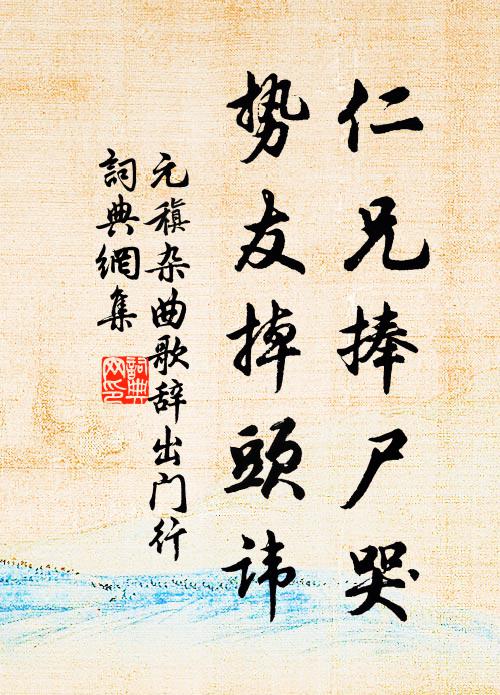 仁兄捧尸哭
势友掉頭讳
元稹杂曲歌辞出门行
詞典網集
詞典网印